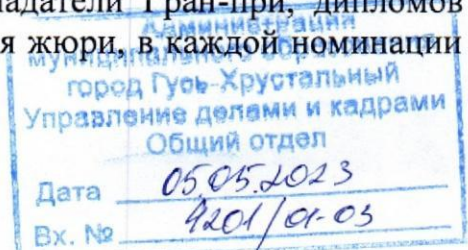 ладатели Гран-при, дипломов
я жюри, в каждой номинации
Администрация
муниципального образования
город Гусь-Хрустальный
Управление делами и кадрами
Общий отдел
Дата 05.05.2023
Вх. № 4201/01-03